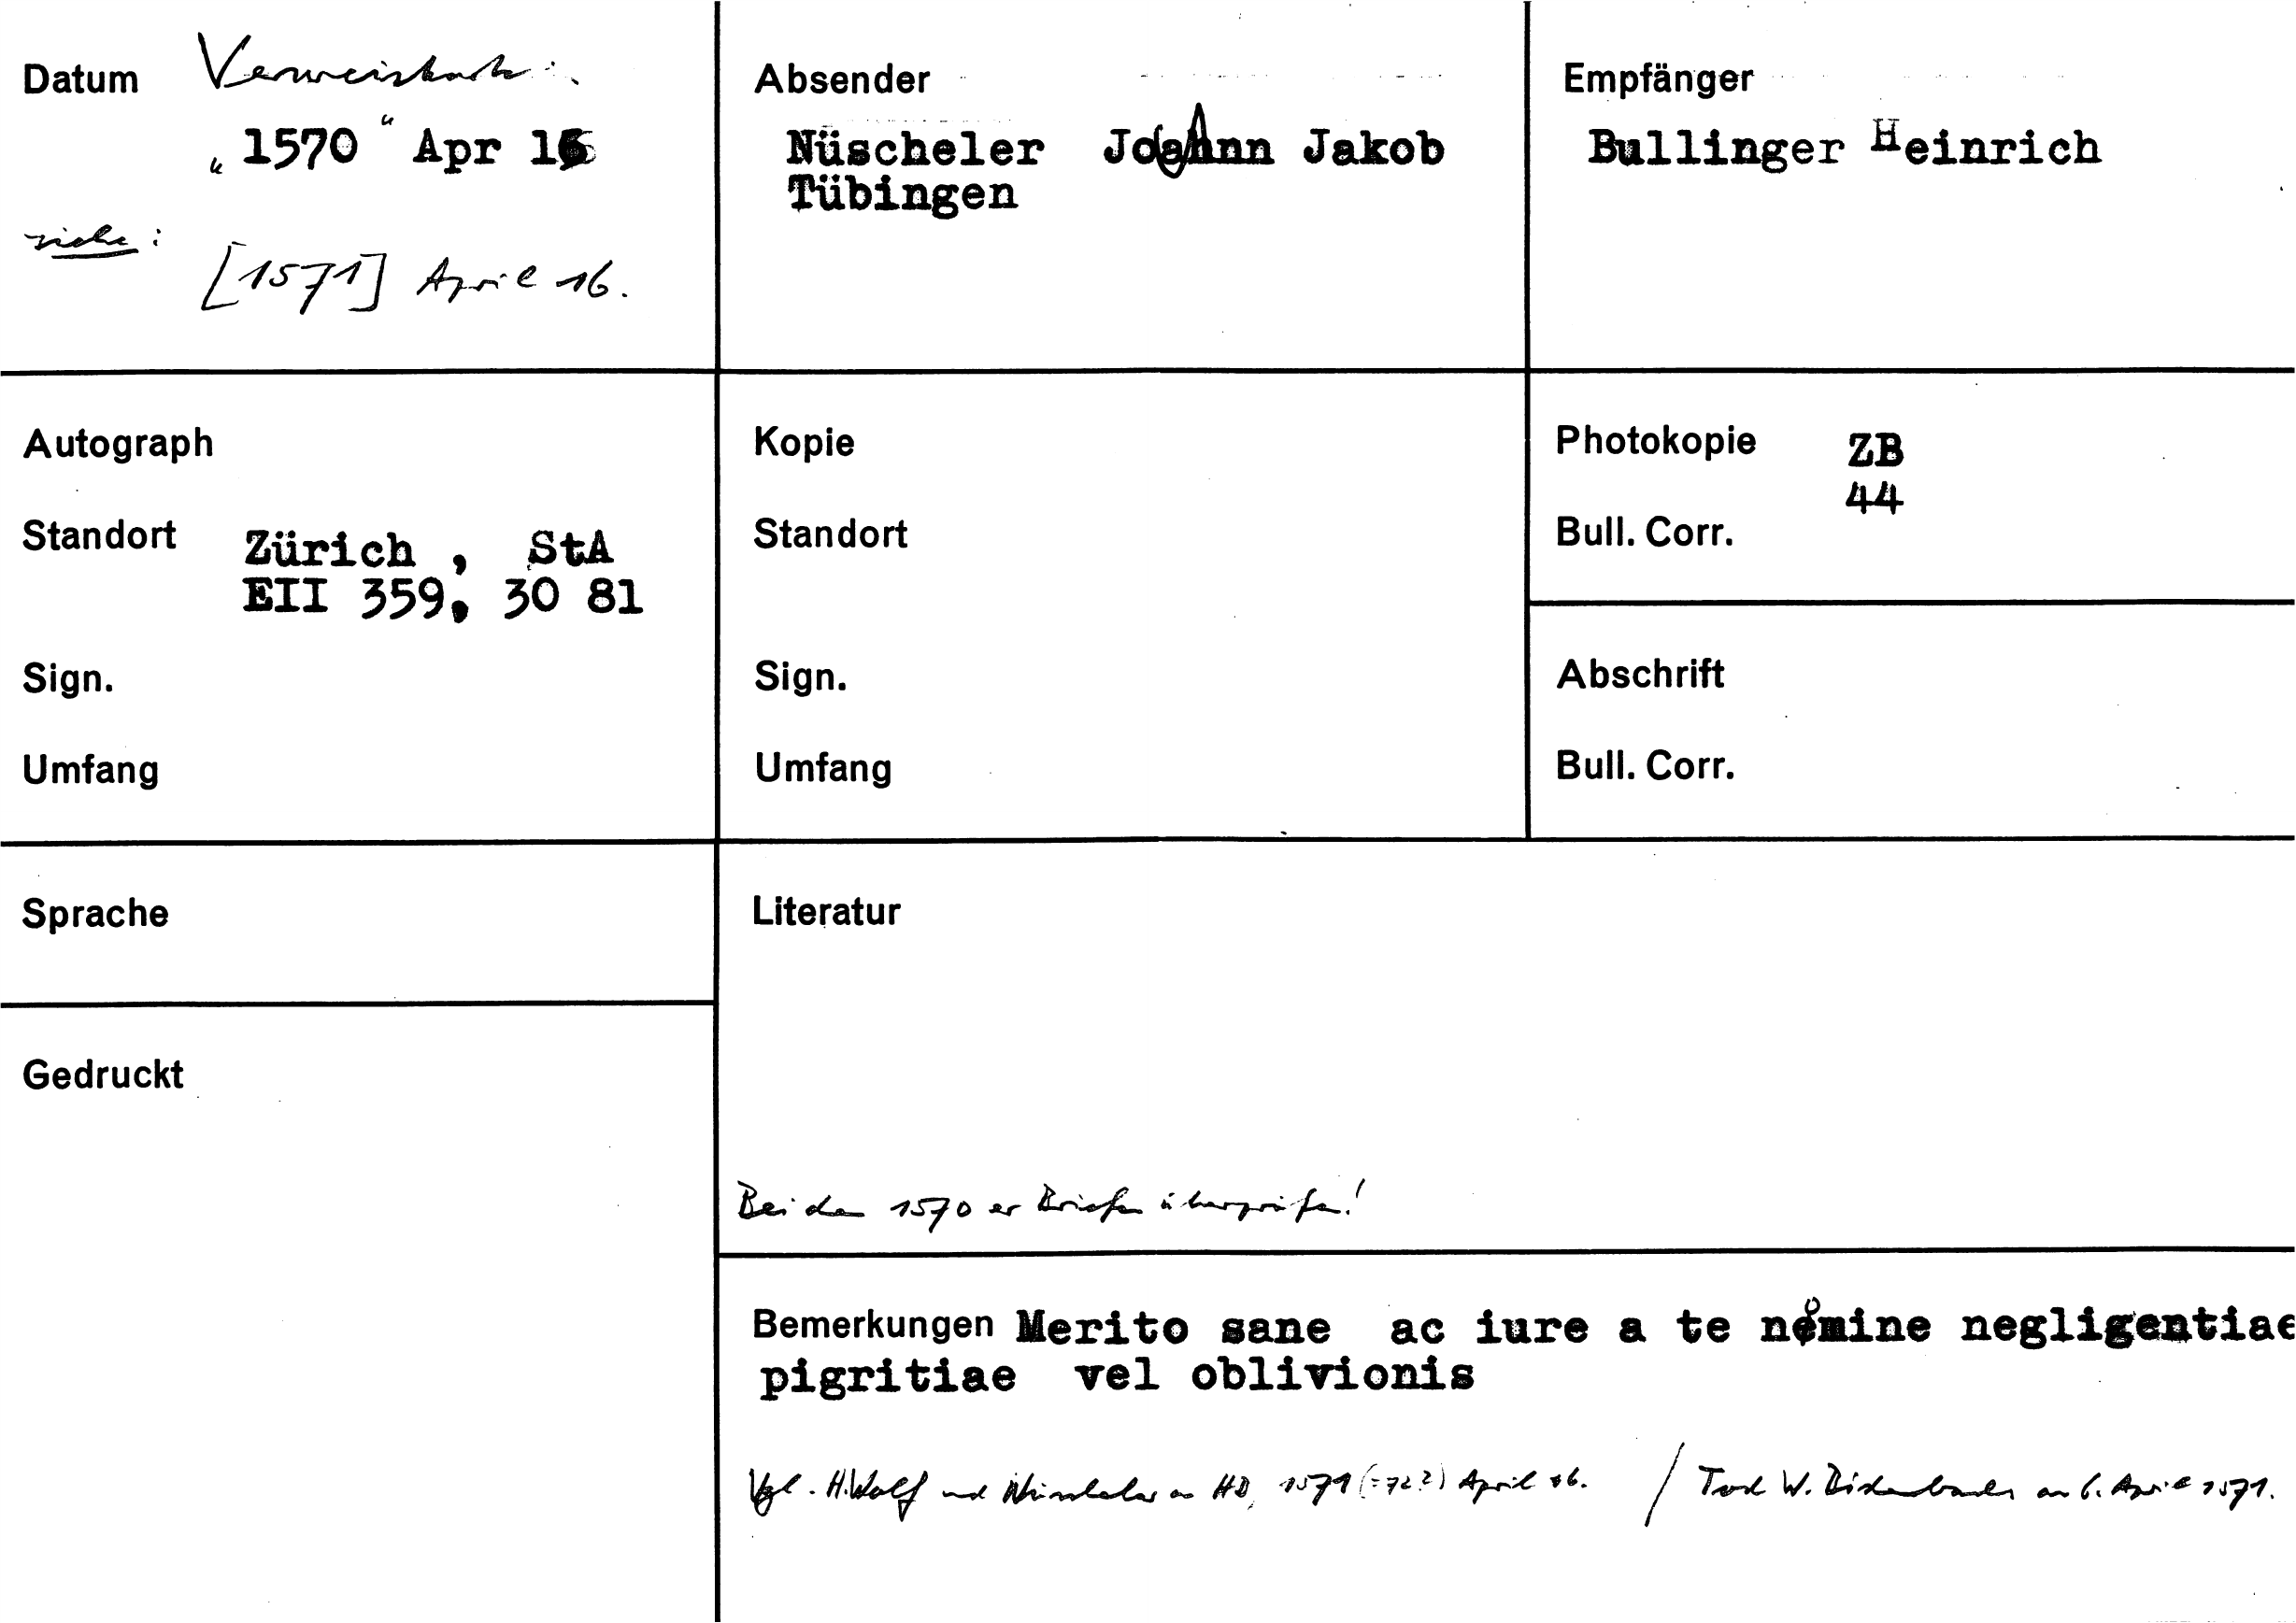 Datum Verweiskarte:
„1570“ Apr 16
siehe:
[1571] April 16.
Absender
Nüscheler Johann Jakob
Tübingen
Empfänger
Bullinger Heinrich
Autograph
Standort Zürich , StA
EII 359, 30 81
Sign.
Umfang
Kopie
Standort
Sign.
Umfang
Photokopie ZB
44
Bull. Corr.
Abschrift
Bull. Corr.
Sprache
Gedruckt
Literatur
Bei den 1570er Briefen überprüfen!
Bemerkungen Merito sane ac iure a te nomine negligentiae
pigritiae vel oblivionis
Vgl. H. Wolf und Nüscheler an HB, 1571 (=72?) April 16. / Tod W. Bidenbachs am 6. April 1571.